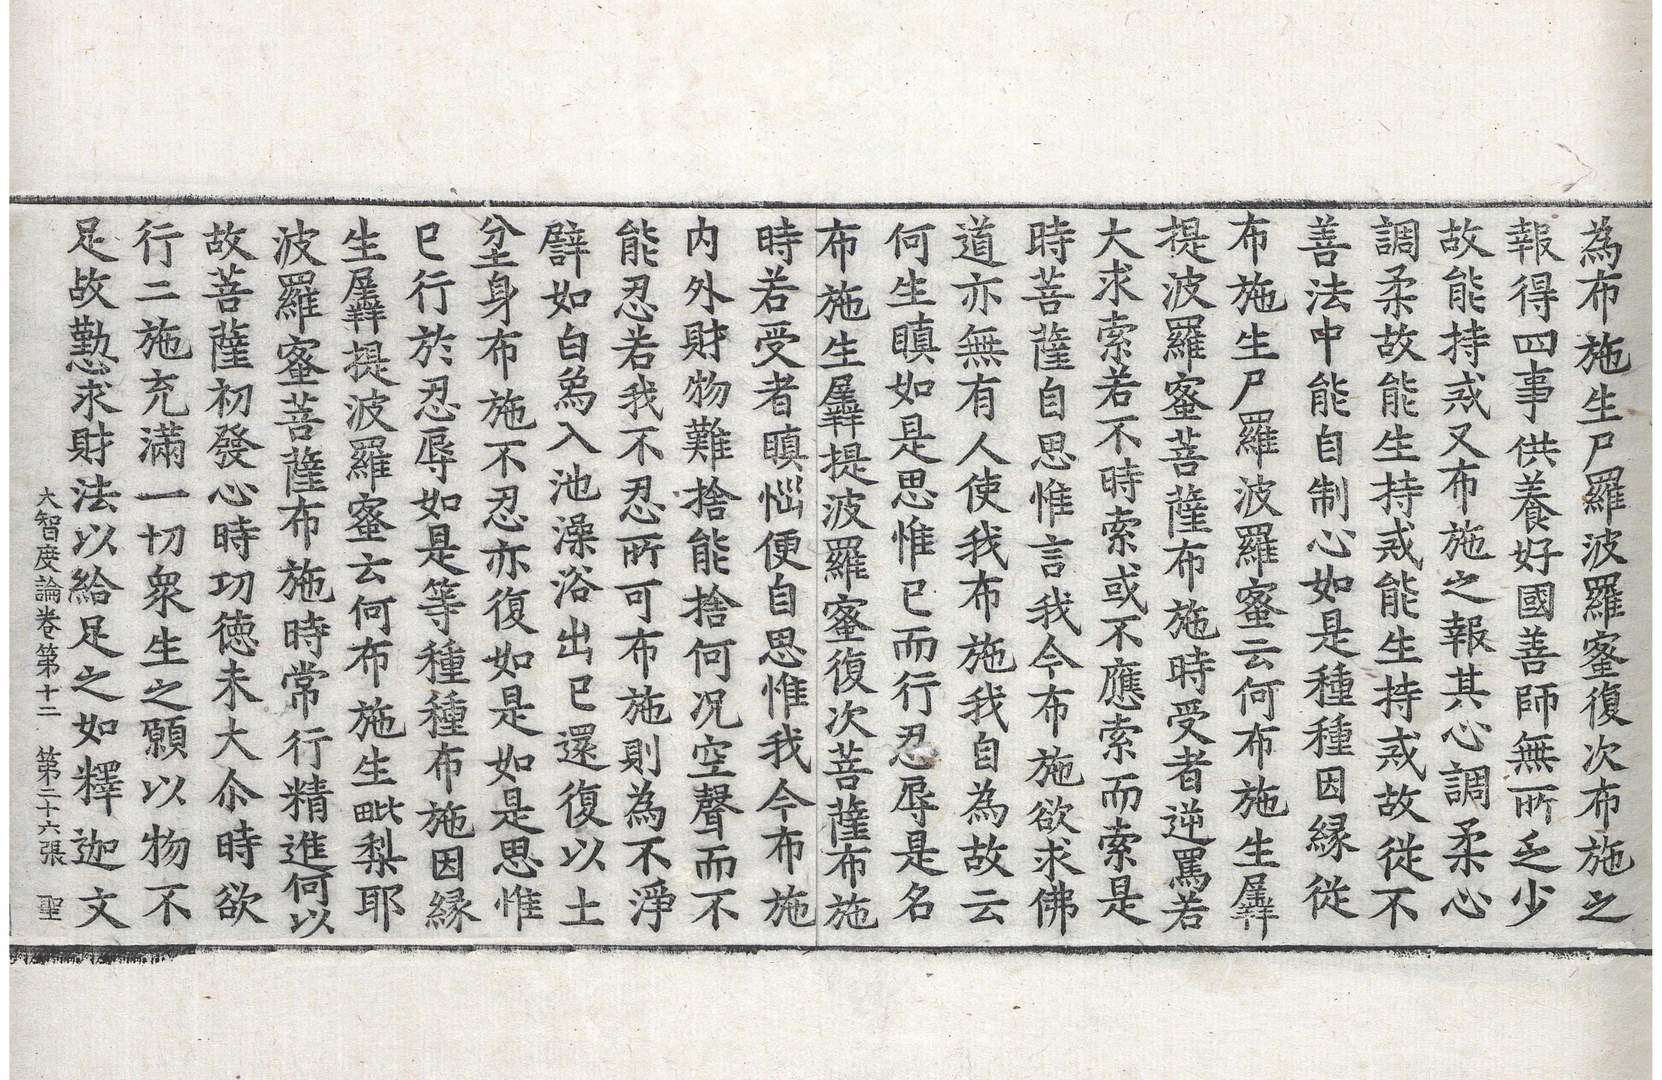 為布施生尸羅波羅蜜復次布施之
報得四事供養好國善師無所乏少
故能持戒又布施之報其心調柔心
調柔故能生持戒能生持戒故從不
善法中能自制心如是種種因緣從
布施生尸羅波羅蜜云何布施生羼
提波羅蜜菩薩布施時受者逆罵若
大求索若不時索或不應索而索是
時菩薩自思惟言我今布施欲求佛
道亦無有人使我布施我自為故云
何生瞋如是思惟已而行忍辱是名
布施生羼提波羅蜜復次菩薩布施
時若受者瞋惱便自思惟我今布施
内外財物難捨能捨何况空聲而不
能忍若我不忍所可布施則為不淨
譬如白象入池澡浴出已還復以土
坌身布施不忍亦復如是如是思惟
已行於忍辱如是等種種布施因緣
生羼提波羅蜜云何布施生毗梨耶
波羅蜜菩薩布施時常行精進何以
故菩薩初發心時功德未大尒時欲
行二施充滿一切衆生之願以物不
足故懃求財法以給足之如釋迦文
大智度論卷第十二 第二十六張 聖